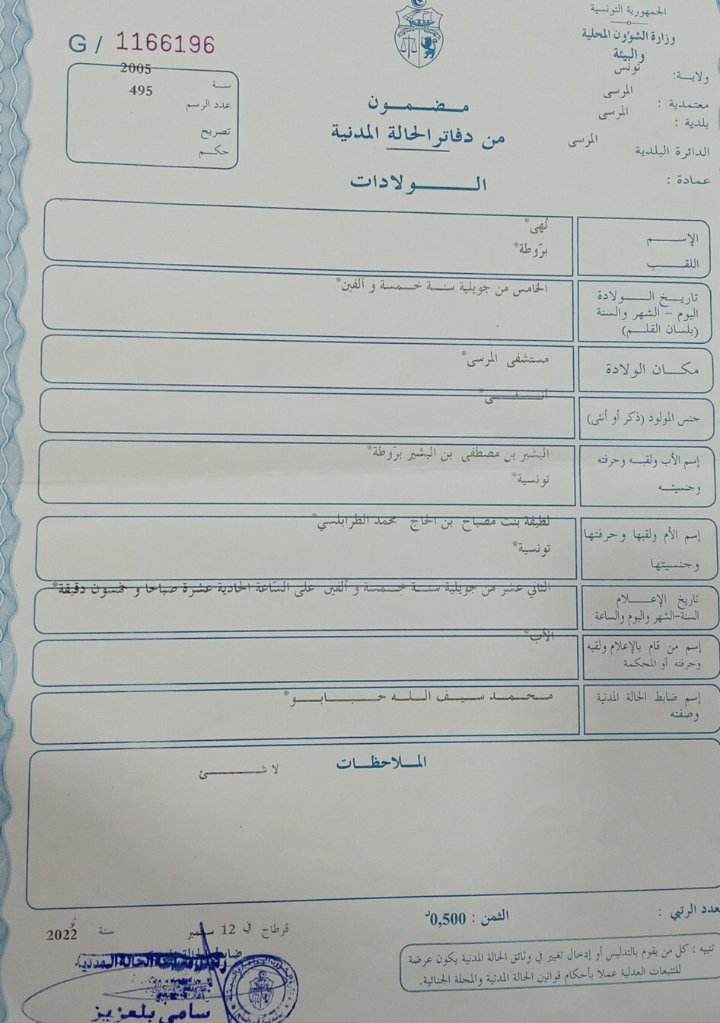 الجمهورية التونسية
وزارة الشؤون المحلية
والبيئة
ولاية: تونس
معتمدية : المرسى
بلدية : المرسى
الدائرة البلدية : المرسى
عمادة :
G / 1166196
سنة 2005
عدد الرسم 495
تصريح
حكم
مضمون
من دفاتر الحالة المدنية
الولادات
الإسم نهى*
اللقب برّوطة*
تاريخ الولادة
اليوم – الشهر والسنة
(بلسان القلم)
الخامس من جويلية سنة خمسة و ألفين*
مكان الولادة مستشفى المرسى*
جنس المولود (ذكر أو أنثى) أنثى*
إسم الأب ولقبه وحرفته
وجنسيته
البشير بن مصطفى بن البشير برّوطة*
تونسية*
إسم الأم ولقبها وحرفتها
وجنسيتها
لطيفة بنت مصباح بن الحاج محمد الطرابلسي*
تونسية*
تاريخ الإعلام
السنة-الشهر واليوم والساعة
الثاني عشر من جويلية سنة خمسة و ألفين على السّاعة الحادية عشرة صباحا و خمسون دقيقة*
إسم من قام بالإعلام ولقبه
وحرفته أو المحكمة
الأب*
إسم ضابط الحالة المدنية
وصفته
محمد سيف الله حبابو*
الملاحظات
لا شئ
العدد الرتبي :
الثمن : 0,500د
قرطاج في 12 سبتمبر سنة 2022
ضابط الحالة المدنية
سامي بلعزيز
تنبيه : كل من يقوم بالتدليس أو إدخال تغيير في وثائق الحالة المدنية يكون عرضة
للتتبعات العدلية عملا بأحكام قوانين الحالة المدنية والمجلة الجنائية.